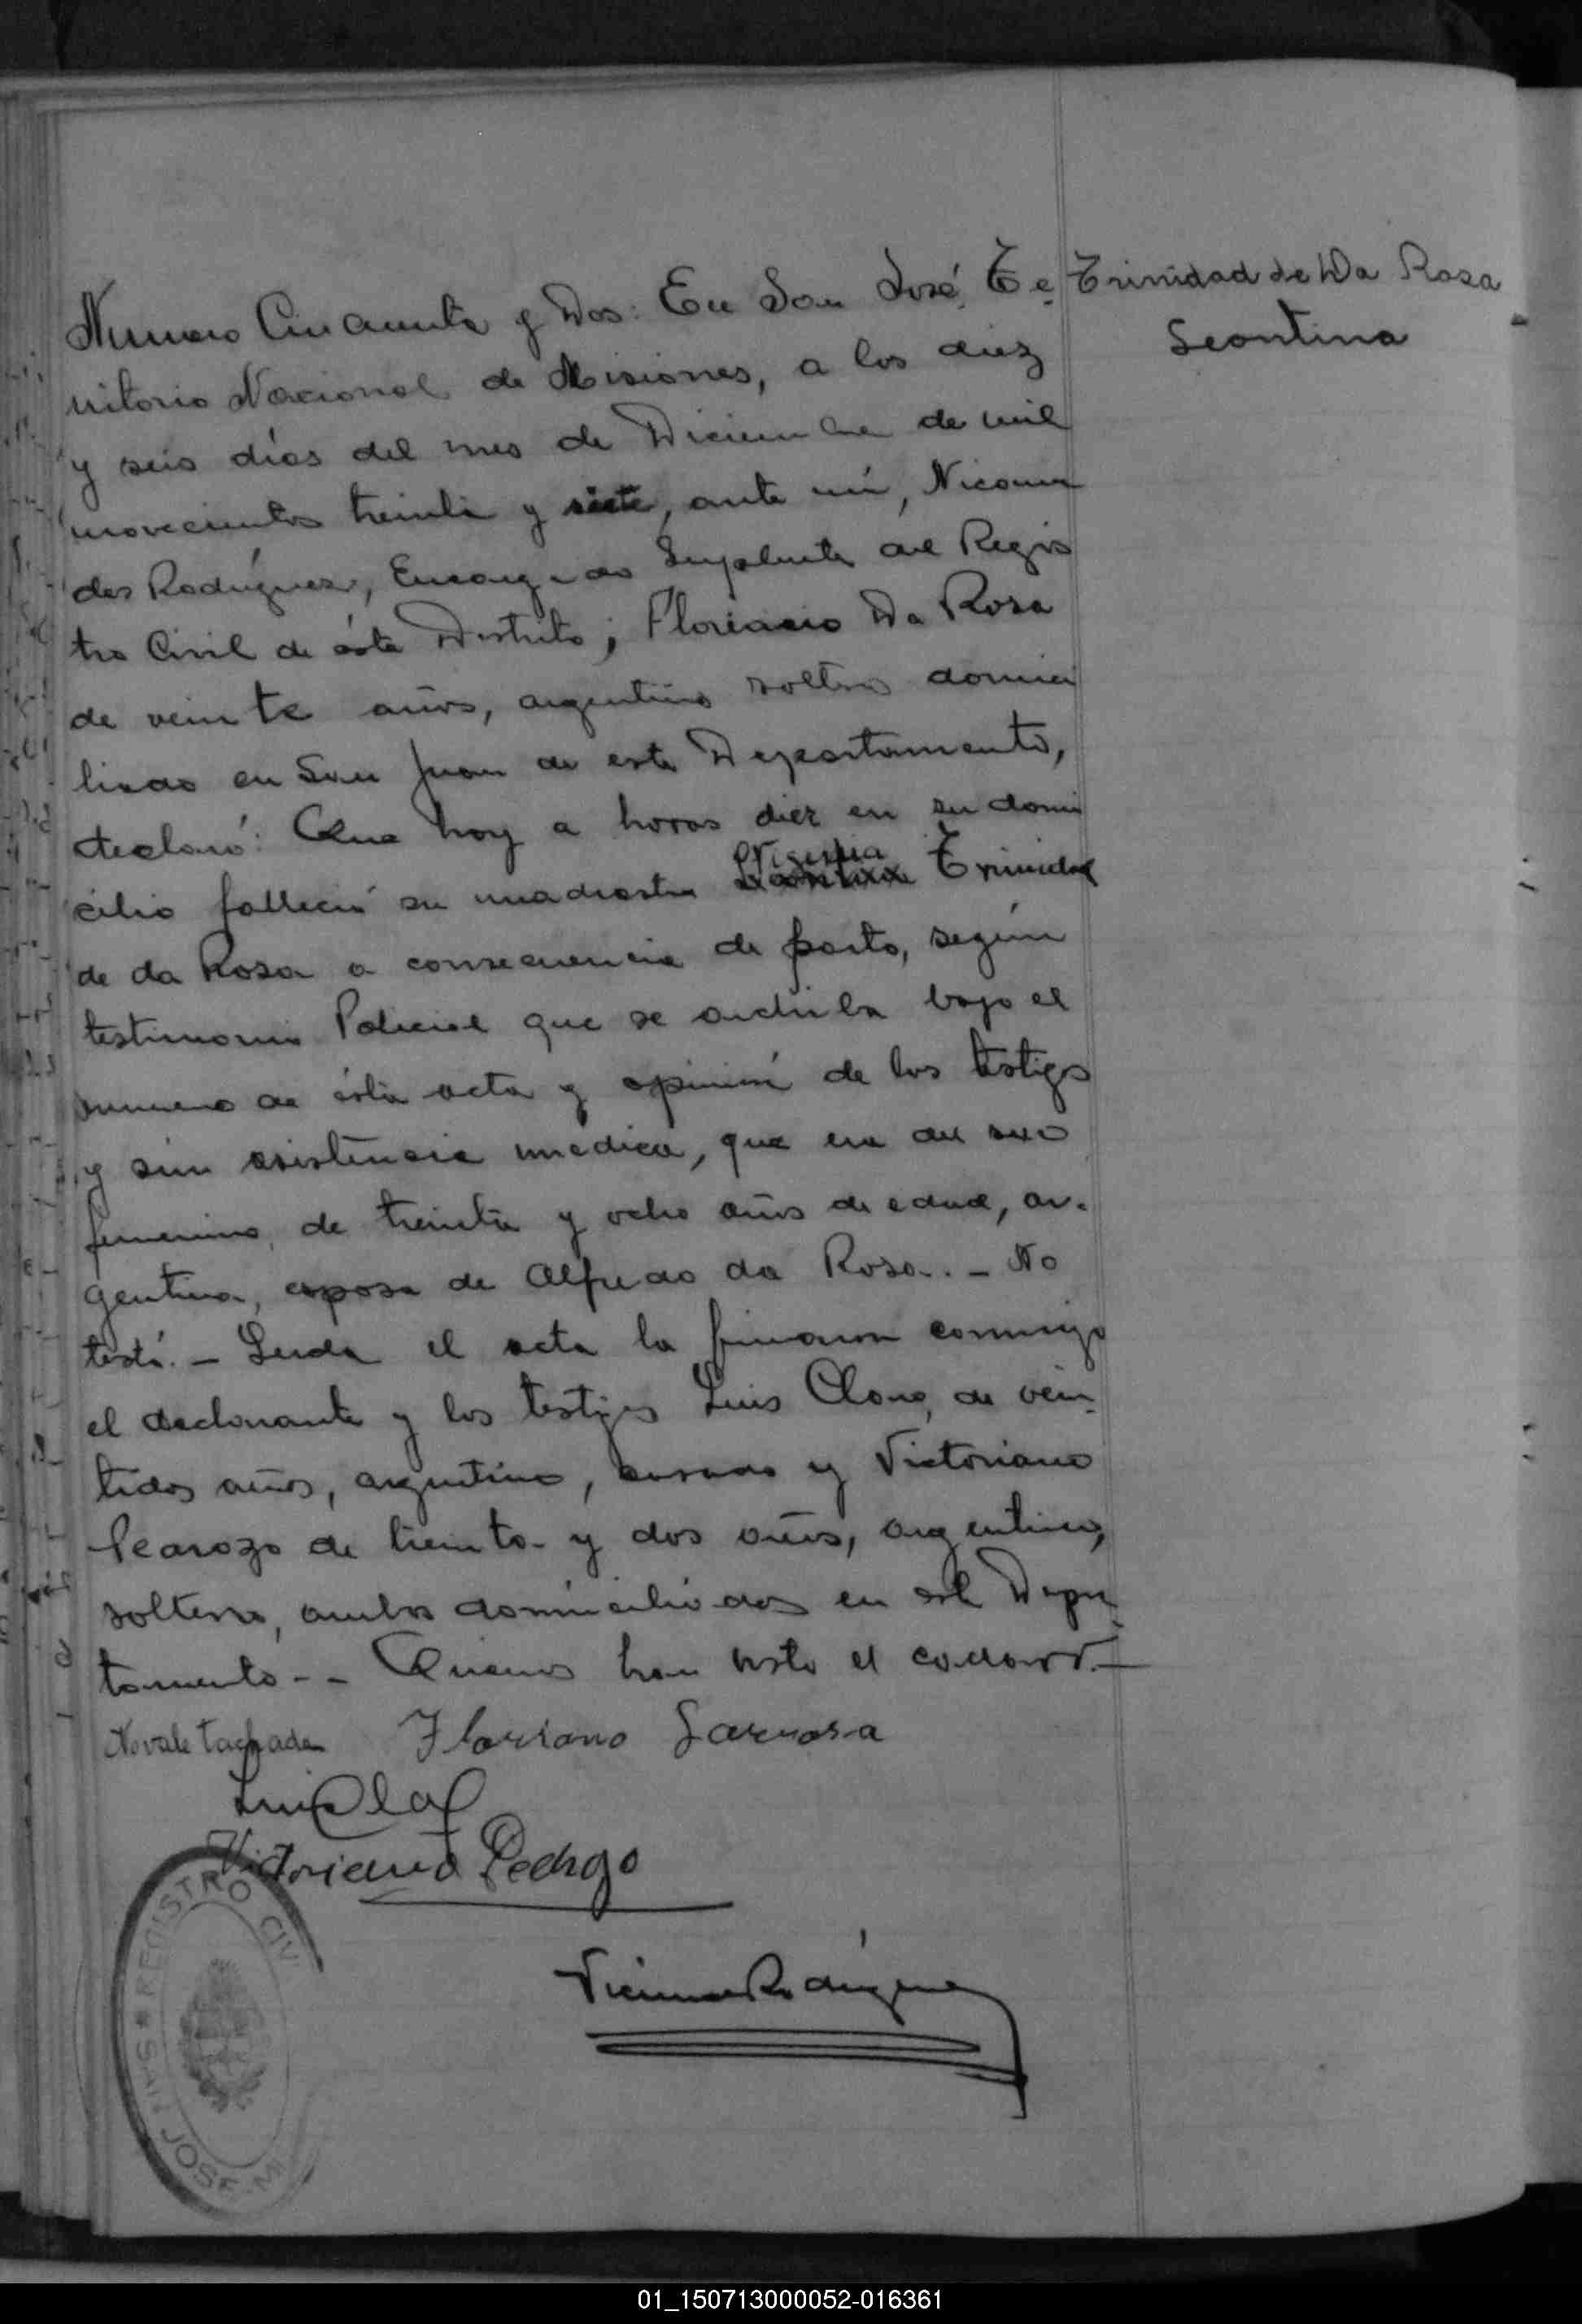 Numero Cincuenta y Dos: En San José, Te
Trinidad de Da Rosa
Leontina
rritorio Nacional de Misiones, a los diez
y seis días del mes de Diciembre de mil
novecientos treinta y siete, ante mí, Nicome
des Rodríguez, Encargado Suplente del Regis
tro Civil de ésta Distrito; Floriano Da Rosa
de veinte años, argentino soltero domici
liado en San Juan de este Departamento,
declaró: Que hoy a horas diez en su domi
cilio falleció su madrastra Trinidad
de da Rosa a consecuencia de parto, según
testimonio Policial que se archiba bajo el
numero de ésta acta y opinión de los testigos
y sin asistencia medica, que era del sexo
femenino, de treinta y ocho años de edad, ar-
gentina, esposa de Alfredo da Rosa. - No
testó. - Leida el acta la firmaron conmigo
el declarante y los testigos Luis Claro, de vein-
tidos años, argentino, casado y Victoriano
de treinta y dos años, argentino,
soltero, ambos domiciliados en este Depar
tamento - - Quienes han visto el cadaver. -
No vale tachado Floriano Darrosa
Luis
Victoriano Pedrozo
Rodríguez
REGISTRO CIV
SAN JOSE-MI
01_150713000052-016361